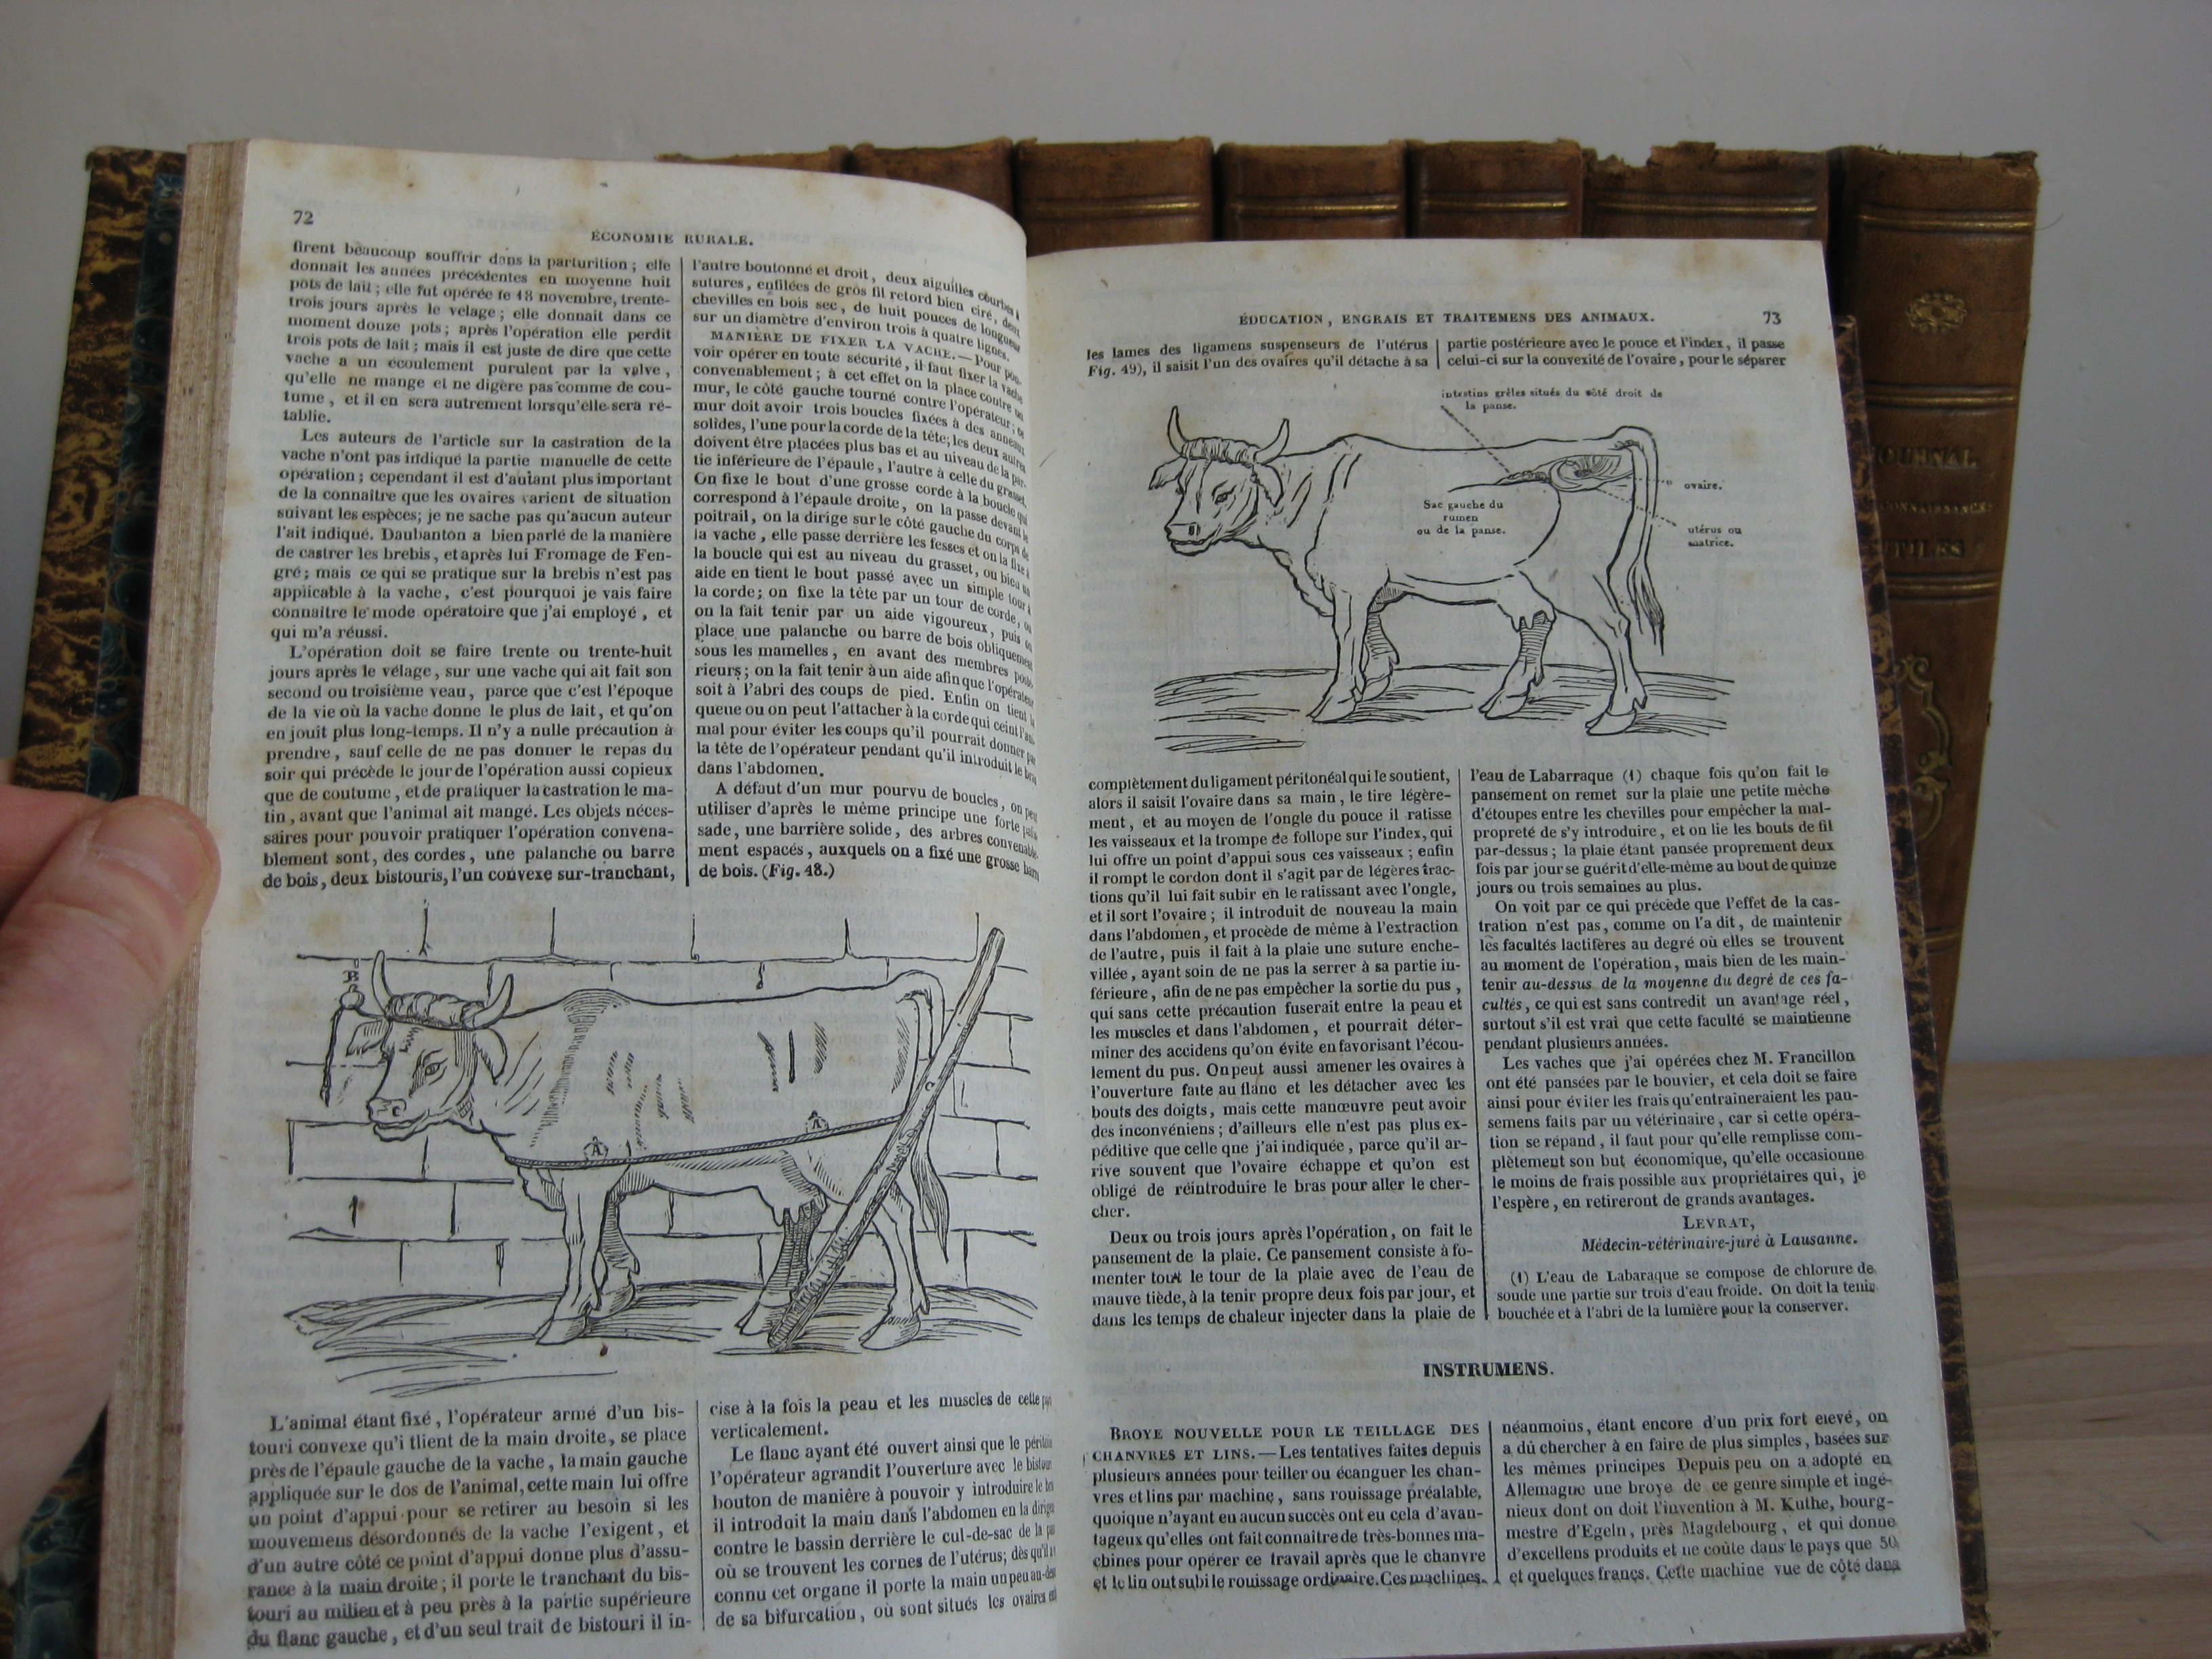 72
ÉCONOMIE RURALE.
firent beaucoup souffrir dans la parturition ; elle
donnait les années précédentes en moyenne huit
pots de lait ; elle fut opérée le 18 novembre, trente-
trois jours après le vélage ; elle donnait dans ce
moment douze pots ; après l'opération elle perdit
trois pots de lait ; mais il est juste de dire que cette
vache a un écoulement purulent par la vulve ,
qu'elle ne mange et ne digère pas comme de cou-
tume , et il en sera autrement lorsqu'elle sera ré-
tablie.
Les auteurs de l'article sur la castration de la
vache n'ont pas indiqué la partie manuelle de cette
opération ; cependant il est d'autant plus important
de la connaître que les ovaires varient de situation
suivant les espèces; je ne sache pas qu'aucun auteur
l'ait indiqué. Daubanton a bien parlé de la manière
de castrer les brebis , et après lui Fromage de Fen-
gré ; mais ce qui se pratique sur la brebis n'est pas
applicable à la vache , c'est pourquoi je vais faire
connaître le mode opératoire que j'ai employé , et
qui m'a réussi.
L'opération doit se faire trente ou trente-huit
jours après le vélage , sur une vache qui ait fait son
second ou troisième veau , parce que c'est l'époque
de la vie où la vache donne le plus de lait , et qu'on
en jouit plus long-temps. Il n'y a nulle précaution à
prendre , sauf celle de ne pas donner le repas du
soir qui précède le jour de l'opération aussi copieux
que de coutume , et de pratiquer la castration le ma-
tin , avant que l'animal ait mangé. Les objets néces-
saires pour pouvoir pratiquer l'opération convena-
blement sont, des cordes , une palanche ou barre
de bois, deux bistouris, l'un convexe sur-tranchant,
l'autre boutonné et droit , deux aiguilles courbes à
sutures , enfilées de gros fil retord bien ciré, deux
chevilles en bois sec , de huit pouces de longueur
sur un diamètre d'environ trois à quatre lignes.
MANIÈRE DE FIXER LA VACHE. — Pour pou-
voir opérer en toute sécurité , il faut fixer la vache
convenablement ; à cet effet on la place contre un
mur, le côté gauche tourné contre l'opérateur ; ce
mur doit avoir trois boucles fixées à des anneaux
solides, l'une pour la corde de la tête; les deux autres
doivent être placées plus bas et au niveau de la par-
tie inférieure de l'épaule , l'autre à celle du grasset.
On fixe le bout d'une grosse corde à la boucle qui
correspond à l'épaule droite , on la passe devant le
poitrail , on la dirige sur le côté gauche du corps de
la vache , elle passe derrière les fesses et on la fixe à
la boucle qui est au niveau du grasset, ou bien un
aide en tient le bout passé avec un simple tour à
la corde ; on fixe la tête par un tour de corde, ou
on la fait tenir par un aide vigoureux , puis on
place une palanche ou barre de bois obliquement
sous les mamelles , en avant des membres posté-
rieurs ; on la fait tenir à un aide afin que l'opérateur
soit à l'abri des coups de pied. Enfin on tient la
queue ou on peut l'attacher à la corde qui ceint l'ani-
mal pour éviter les coups qu'il pourrait donner par
la tête de l'opérateur pendant qu'il introduit le bras
dans l'abdomen.
A défaut d'un mur pourvu de boucles , on peut
utiliser d'après le même principe une forte palis-
sade , une barrière solide , des arbres convenable-
ment espacés , auxquels on a fixé une grosse barre
de bois. (Fig. 48.)
B
A
A
C
L'animal étant fixé , l'opérateur armé d'un bis-
touri convexe qu'i tlient de la main droite, se place
près de l'épaule gauche de la vache , la main gauche
appliquée sur le dos de l'animal, cette main lui offre
un point d'appui pour se retirer au besoin si les
mouvemens désordonnés de la vache l'exigent , et
d'un autre côté ce point d'appui donne plus d'assu-
rance à la main droite ; il porte le tranchant du bis-
touri au milieu et à peu près à la partie supérieure
du flanc gauche , et d'un seul trait de bistouri il in-
cise à la fois la peau et les muscles de cette
verticalement.
Le flanc ayant été ouvert ainsi que le péritoine
l'opérateur agrandit l'ouverture avec le bistouri
bouton de manière à pouvoir y introduire le bras
il introduit la main dans l'abdomen en la dirigeant
contre le bassin derrière le cul-de-sac de la
où se trouvent les cornes de l'utérus; dès qu'il a
connu cet organe il porte la main un peu au-dessus
de sa bifurcation , où sont situés les ovaires
ÉDUCATION , ENGRAIS ET TRAITEMENS DES ANIMAUX.
73
les lames des ligamens suspenseurs de l'utérus
Fig. 49), il saisit l'un des ovaires qu'il détache à sa
partie postérieure avec le pouce et l'index , il passe
celui-ci sur la convexité de l'ovaire , pour le séparer
intestins grêles situés du côté droit de
la panse.
Sac gauche du
rumen
ou de la panse.
ovaire.
utérus ou
matrice.
complètement du ligament péritonéal qui le soutient,
alors il saisit l'ovaire dans sa main , le tire légère-
ment , et au moyen de l'ongle du pouce il ratisse
les vaisseaux et la trompe de follope sur l'index, qui
lui offre un point d'appui sous ces vaisseaux ; enfin
il rompt le cordon dont il s'agit par de légères trac-
tions qu'il lui fait subir en le ratissant avec l'ongle,
et il sort l'ovaire ; il introduit de nouveau la main
dans l'abdomen, et procède de même à l'extraction
de l'autre, puis il fait à la plaie une suture enche-
villée, ayant soin de ne pas la serrer à sa partie in-
férieure , afin de ne pas empêcher la sortie du pus ,
qui sans cette précaution fuserait entre la peau et
les muscles et dans l'abdomen , et pourrait déter-
miner des accidens qu'on évite en favorisant l'écou-
lement du pus. On peut aussi amener les ovaires à
l'ouverture faite au flanc et les détacher avec les
bouts des doigts, mais cette manœuvre peut avoir
des inconvéniens ; d'ailleurs elle n'est pas plus ex-
péditive que celle que j'ai indiquée , parce qu'il ar-
rive souvent que l'ovaire échappe et qu'on est
obligé de réintroduire le bras pour aller le cher-
cher.
Deux ou trois jours après l'opération, on fait le
pansement de la plaie. Ce pansement consiste à fo-
menter tout le tour de la plaie avec de l'eau de
mauve tiède, à la tenir propre deux fois par jour, et
dans les temps de chaleur injecter dans la plaie de
l'eau de Labarraque (1) chaque fois qu'on fait le
pansement on remet sur la plaie une petite mèche
d'étoupes entre les chevilles pour empêcher la mal-
propreté de s'y introduire , et on lie les bouts de fil
par-dessus ; la plaie étant pansée proprement deux
fois par jour se guérit d'elle-même au bout de quinze
jours ou trois semaines au plus.
On voit par ce qui précède que l'effet de la cas-
tration n'est pas, comme on l'a dit , de maintenir
les facultés lactifères au degré où elles se trouvent
au moment de l'opération, mais bien de les main-
tenir au-dessus de la moyenne du degré de ces fa-
cultés, ce qui est sans contredit un avantage réel ,
surtout s'il est vrai que cette faculté se maintienne
pendant plusieurs années.
Les vaches que j'ai opérées chez M. Francillon
ont été pansées par le bouvier, et cela doit se faire
ainsi pour éviter les frais qu'entraîneraient les pan-
semens faits par un vétérinaire , car si cette opéra-
tion se répand , il faut pour qu'elle remplisse com-
plètement son but économique, qu'elle occasionne
le moins de frais possible aux propriétaires qui, je
l'espère , en retireront de grands avantages.
LEVRAT,
Médecin-vétérinaire-juré à Lausanne.
(1) L'eau de Labaraque se compose de chlorure de
soude une partie sur trois d'eau froide. On doit la tenir
bouchée et à l'abri de la lumière pour la conserver.
INSTRUMENS.
BROYE NOUVELLE POUR LE TEILLAGE DES
CHANVRES ET LINS. — Les tentatives faites depuis
plusieurs années pour teiller ou écanguer les chan-
vres et lins par machine, sans rouissage préalable,
quoique n'ayant eu aucun succès ont eu cela d'avan-
tageux qu'elles ont fait connaître de très-bonnes ma-
chines pour opérer ce travail après que le chanvre
et le lin ont subi le rouissage ordinaire. Ces machines.
néanmoins, étant encore d'un prix fort élevé, on
a dû chercher à en faire de plus simples, basées sur
les mêmes principes Depuis peu on a adopté en
Allemagne une broye de ce genre simple et ingé-
nieux dont on doit l'invention à M. Kuthe, bourg-
mestre d'Egeln, près Magdebourg , et qui donne
d'excellens produits et ne coûte dans le pays que 50
et quelques francs. Cette machine vue de côté dans
JOURNAL
CONNAISSANCES
UTILES